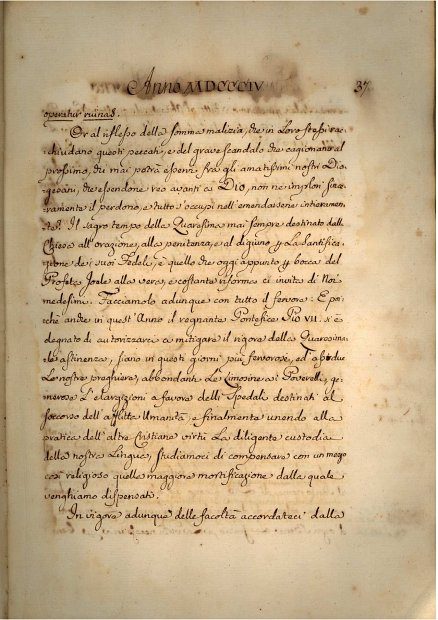 Anno MDCCCIV 37
operatur ruinas.
Or al riflesso della somma malizia, che in Loro stessi rac-
chiudano questi peccati, e del grave scandalo che cagionano al
prossimo, chi mai potrà esservi fra gli amatissimi nostri Dio-
cesani, che essendone reo avanti a Dio, non ne implori since-
ramente il perdono, e tutto s'occupi nell'emendazione interamen-
te? Il sagro tempo della Quaresima mai sempre destinato dalla
Chiesa all'orazione, alla penitenza, e al digiuno p La Santifica-
zione de' suoi Fedeli, è quello che oggi appunto p bocca del
Profeta Joele alla vera, e costante riforma ci invita di Noi
medesimi. Facciamolo adunque con tutto il fervore: E poi-
chè anche in quest'Anno il regnante Pontefice Pio VII. s'è
degnato di autorizzarci a mitigare il rigore della Quaresima-
le astinenza, siano in questi giorni più fervorose, ed assidue
Le nostre preghiere, abbondanti Le Limosine ai Poverelli, ge-
nerose L'elargizioni a favore delli Spedali destinati al
soccorso dell'afflitta Umanità, e finalmente unendo alla
pratica dell'altre Cristiane virtù La diligente custodia
della nostra Lingua, studiamoci di compensare con un mezzo
così religioso quella maggiore mortificazione dalla quale
venghiamo dispensati.
In vigore adunque delle facoltà accordateci dalla